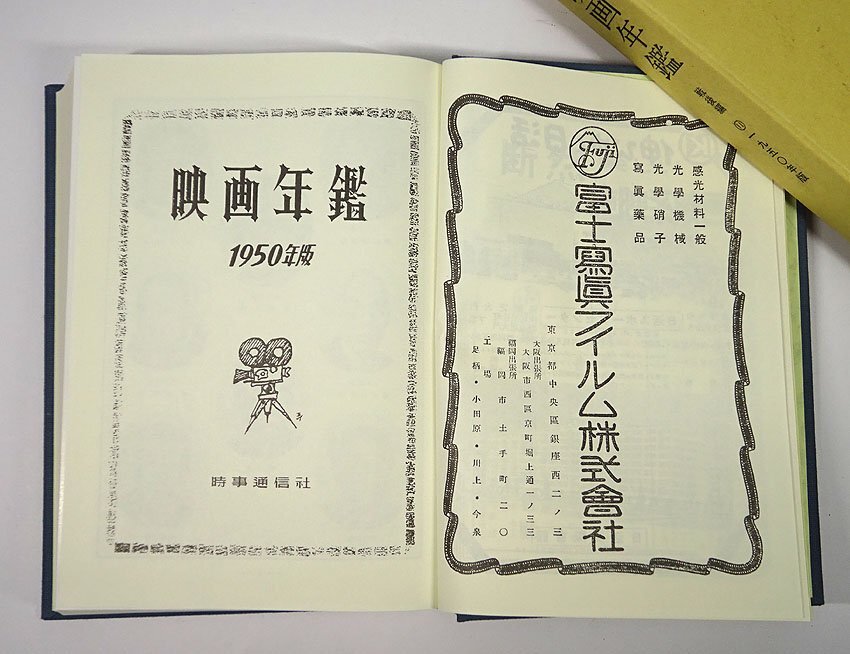 映画年鑑
1950年版
時事通信社
Fuji
感光材料一般
光學機械
光學硝子
寫眞薬品
富士寫眞フイルム株式會社
東京都中央區銀座西二ノ三
大阪出張所
大阪市西區京町堀上通一ノ三三
福岡出張所
福岡市土手町二〇
工場
足柄・小田原・川上・今泉
画年鑑
一九五〇年版